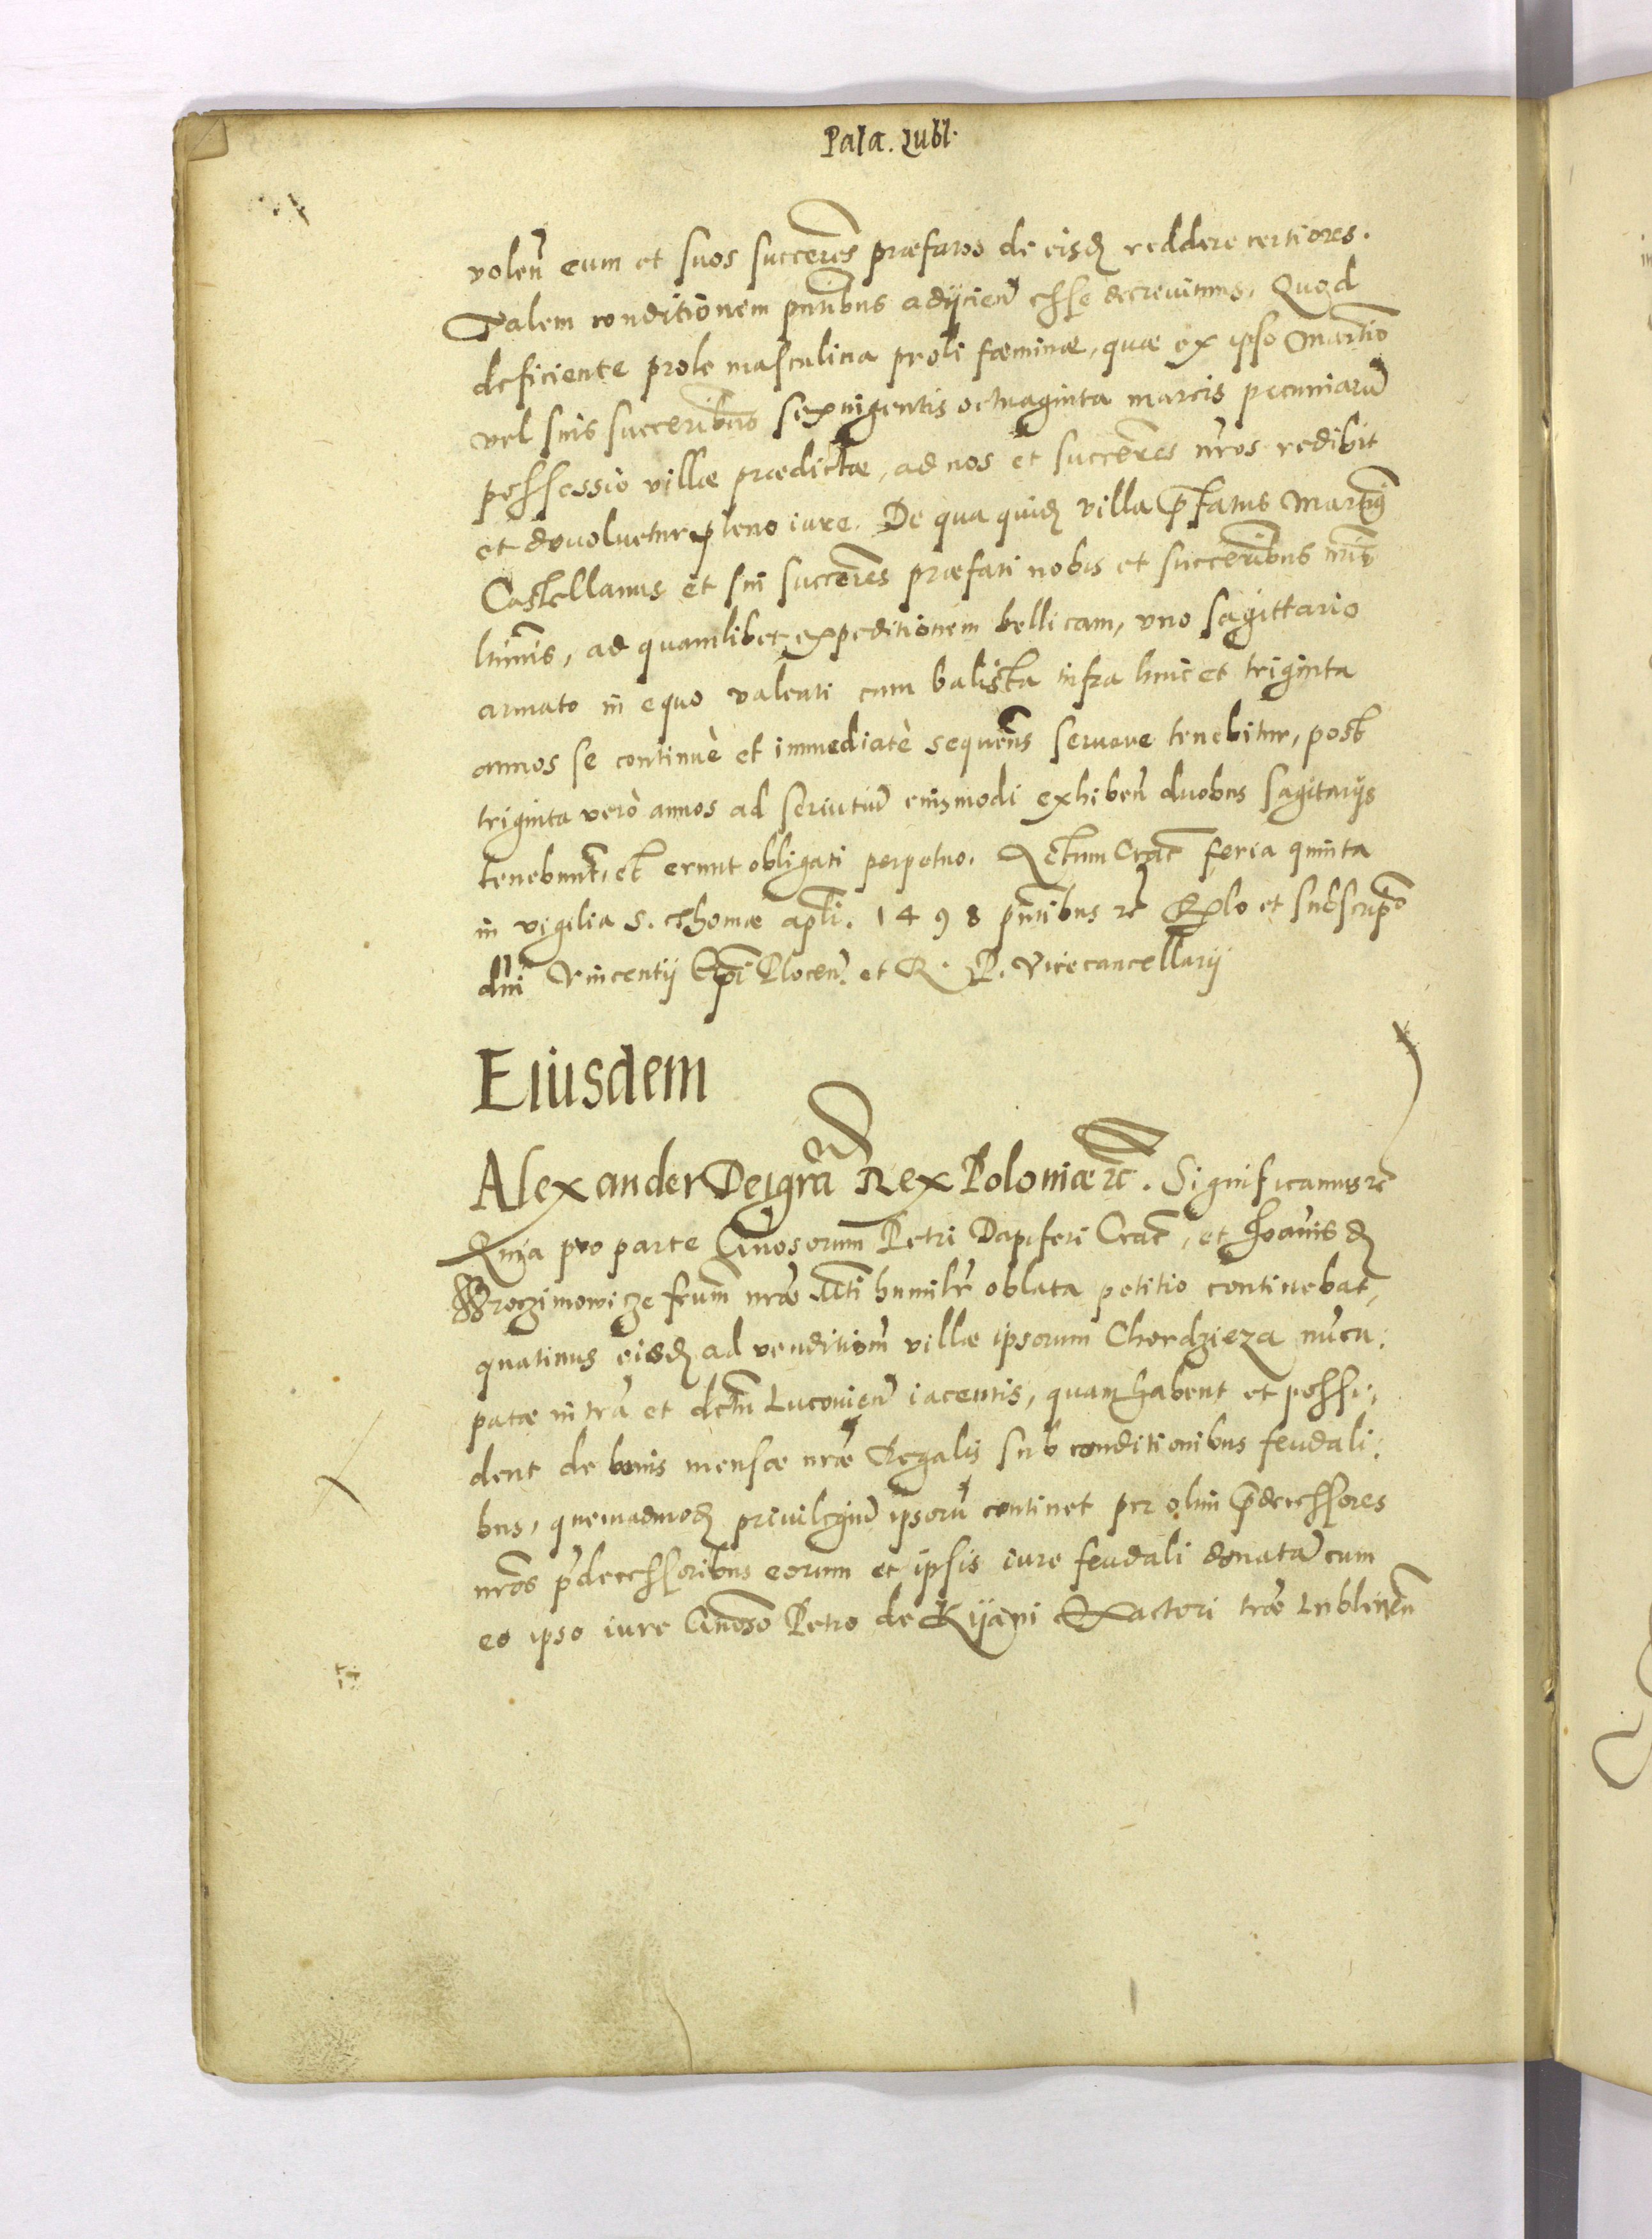 Pala. Lubl.
volen̄ eum et suos succeres̄ præfatos de eisđ reddere certiores.
Talem conditionem pn̄tibus adijcien̄ esse decrevimus. Quod
deficiente prole masculina proli fæminæ, quæ ex ipso Martio
vel suis succerib̄us sexingentis octuaginta marcis pecuniarū
possessio villæ prædictæ, ad nos et succeres̄ nr̄os redibit
et devolvetur pleno iure. De qua quiđ villa p̄fatus Martiꝰ
Castellanus et sui succeres̄ præfati nobis et succerib̄us nr̄is
ltīmis, ad quamlibet expeditionem bellicam, vno sagittario
armato in equo valenti cum balista infra hinc et triginta
annos se continuè et immediatè sequen̄s servare tenebitur, post
triginta verò annos ad serviciū eiusmodi exhiben̄ duobus sagitarijs
tenebunt̄, et erunt obligati perpetuo. Actum Crac̄ feria quinta
in vigilia S. Thomæ apl̄i. 1498 pn̄tibus ꝛc̄ Rl̄o et subscrip̄o
dn̄i Vincentij Ep̄i Plocen̄. et R. P. Vicecancellarij
Eiusdem
Alexander Dei gr̄a Rex Poloniæ ꝛc̄. Significamus ꝛc̄
Quia pro parte Gn̄osorum Petri Dapiferi Crac̄, et Joan̄is đ
Brogzimowicze fr̄um nr̄æ Mt̄i humilr̄ oblata petitio continebat,
quatinus eisđ ad venditiom̄ villæ ipsorum Chordzieza nūcu:
patæ in tr̄a et dct̄u Luconien̄ iacentis, quam habent et possi:
dent de bonis mensæ nr̄æ Regalis sub conditionibus feudali:
bus, quemadmođ privilegiū ipsorū continet per olim p̄decessores
nr̄os p̄decessoribus eorum et ipsis iure feudali donatā cum
eo ipso iure Gn̄oso Petro de Kijani Exactori tr̄æ Lublinen̄